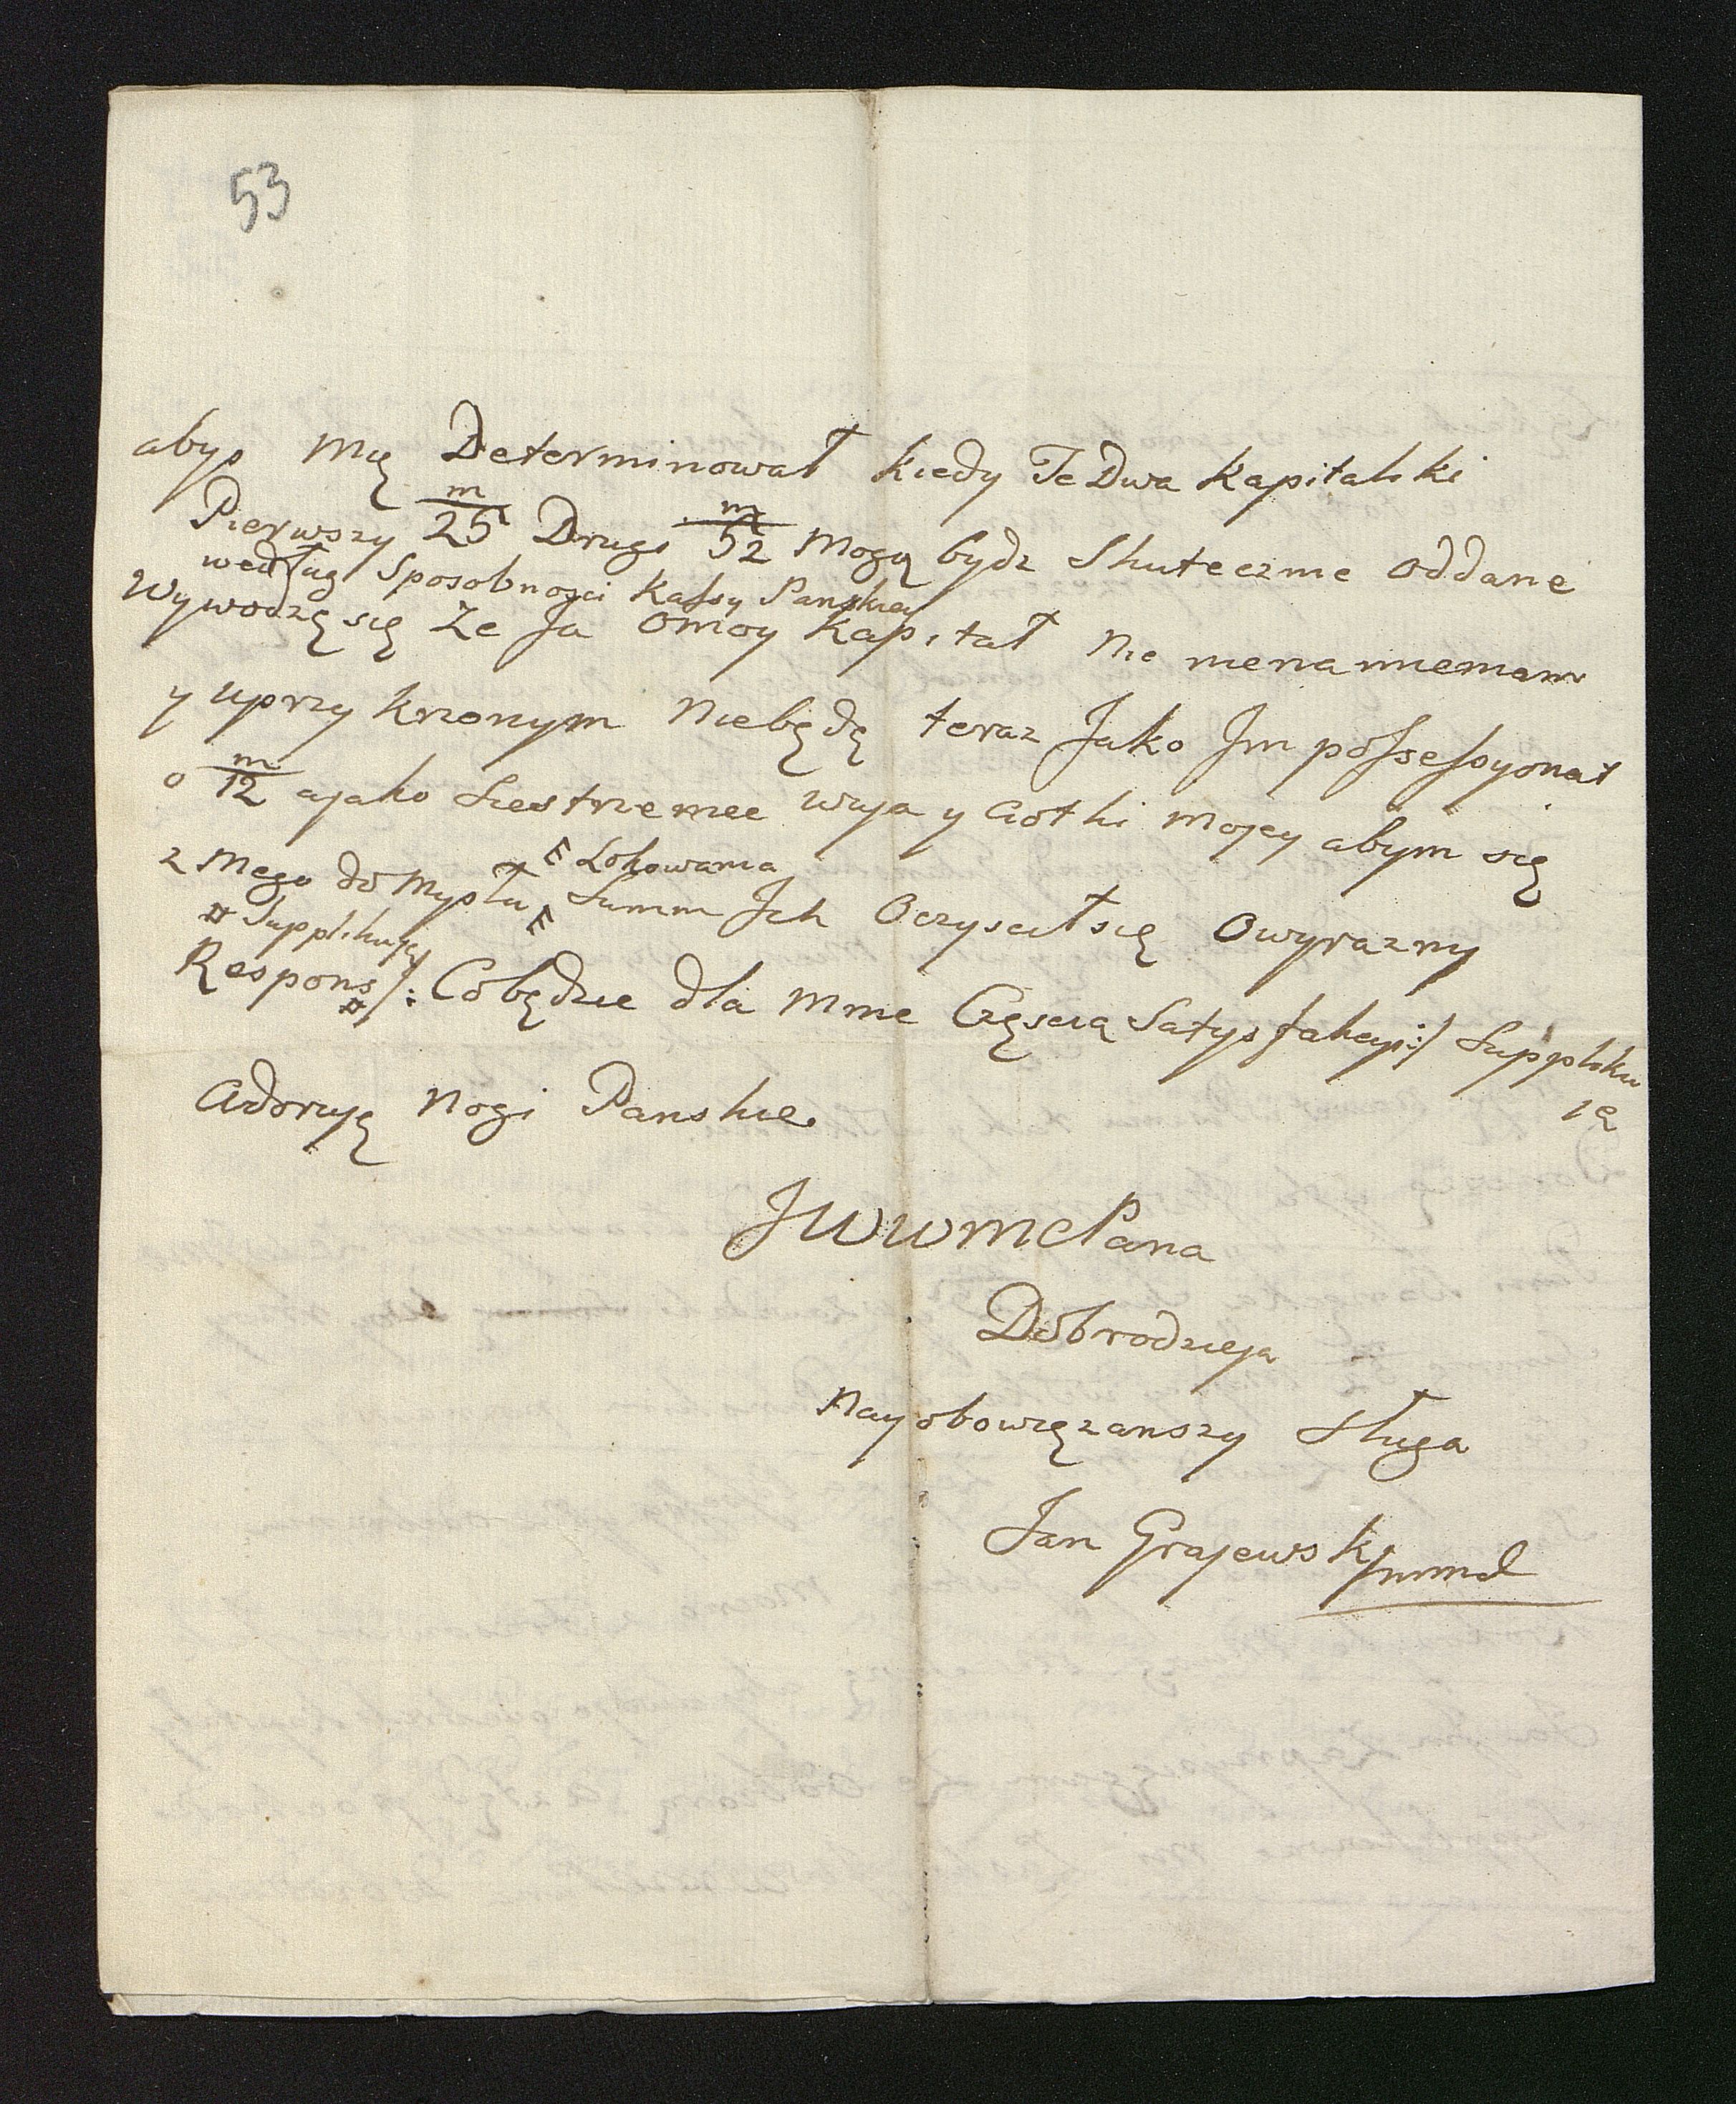 53
abyś mię Determinował kiedy Te Dwa kapitaliki
Pierwszy m/25 Drugi m/52 mogą bydz Skutecznie oddane
według Sposobnosci Kassy Panskiey
Wywodzę się Ze Ja o moy kapitał Nie nienanniemam
y uprzykrzonym Niebędę teraz Jako Impossessyonat
o m/12 a jako Siestrzeniec wuja y Ciotki mojey abym się
Lokowania
z mego domysłu Summ Ich Oczyscił się o wyrazny
Supplikuję
Respons /: Cobędzie dla mnie Częscią Satysfakcyi :/ Suppliku
ię
Adoruję Nogi Panskie.
JWWMCPana
Dobrodzieja
Nayobowięzanszy Sługa
Jan Grajewski mmd